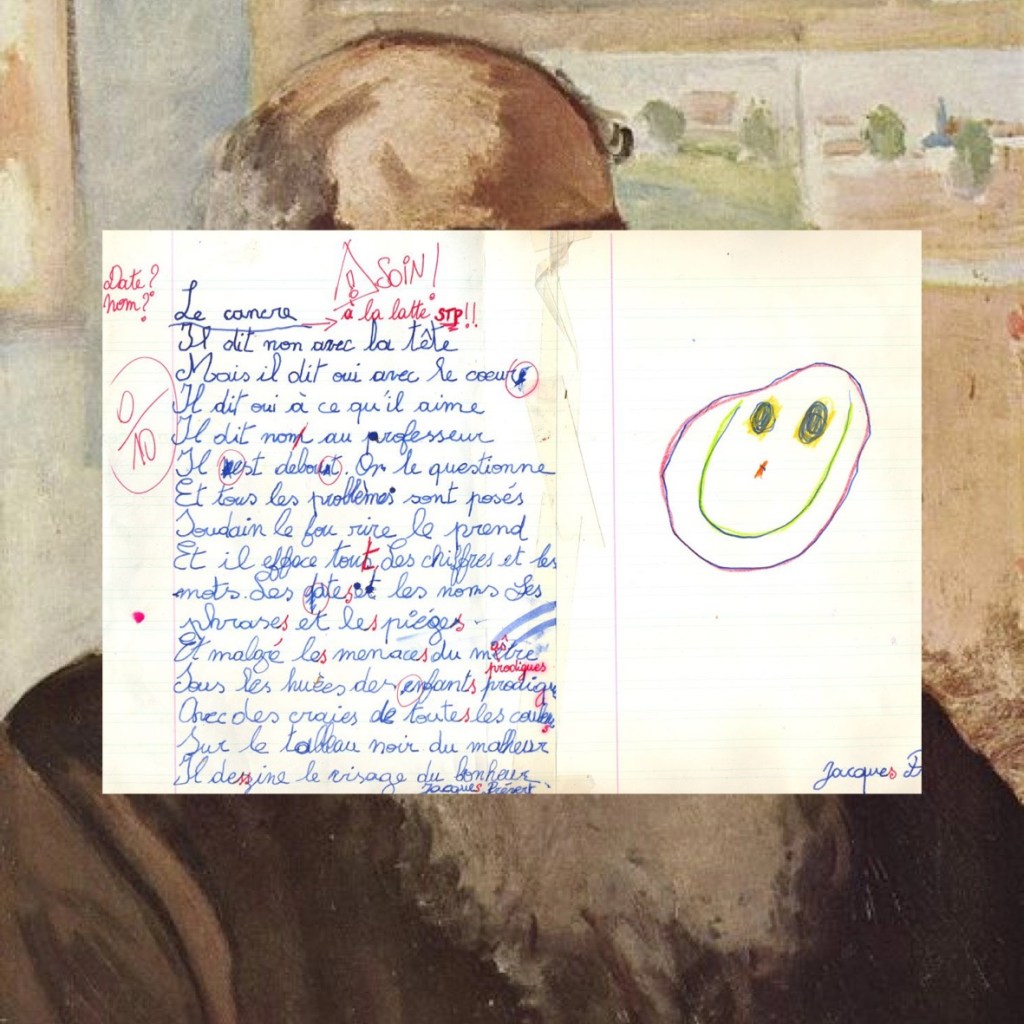 Date?
nom?
SOIN!
Le cancre
à la latte STP!!
0/10
Il dit non avec la tête
Mais il dit oui avec le coeur
Il dit oui à ce qu'il aime
Il dit non au professeur
Il est debout. On le questionne
Et tous les problèmes sont posés
Soudain le fou rire le prend
Et il efface tout Les chiffres et les
mots. Les dates et les noms Les
phrases et les pièges.
Et malgré les menaces du maître
prodigues
Sous les huées des enfants prodigu
Avec des craies de toutes les coule
s
Sur le tableau noir du malheur
Il dessine le visage du bonheur
Jacques Prévert
Jacques P